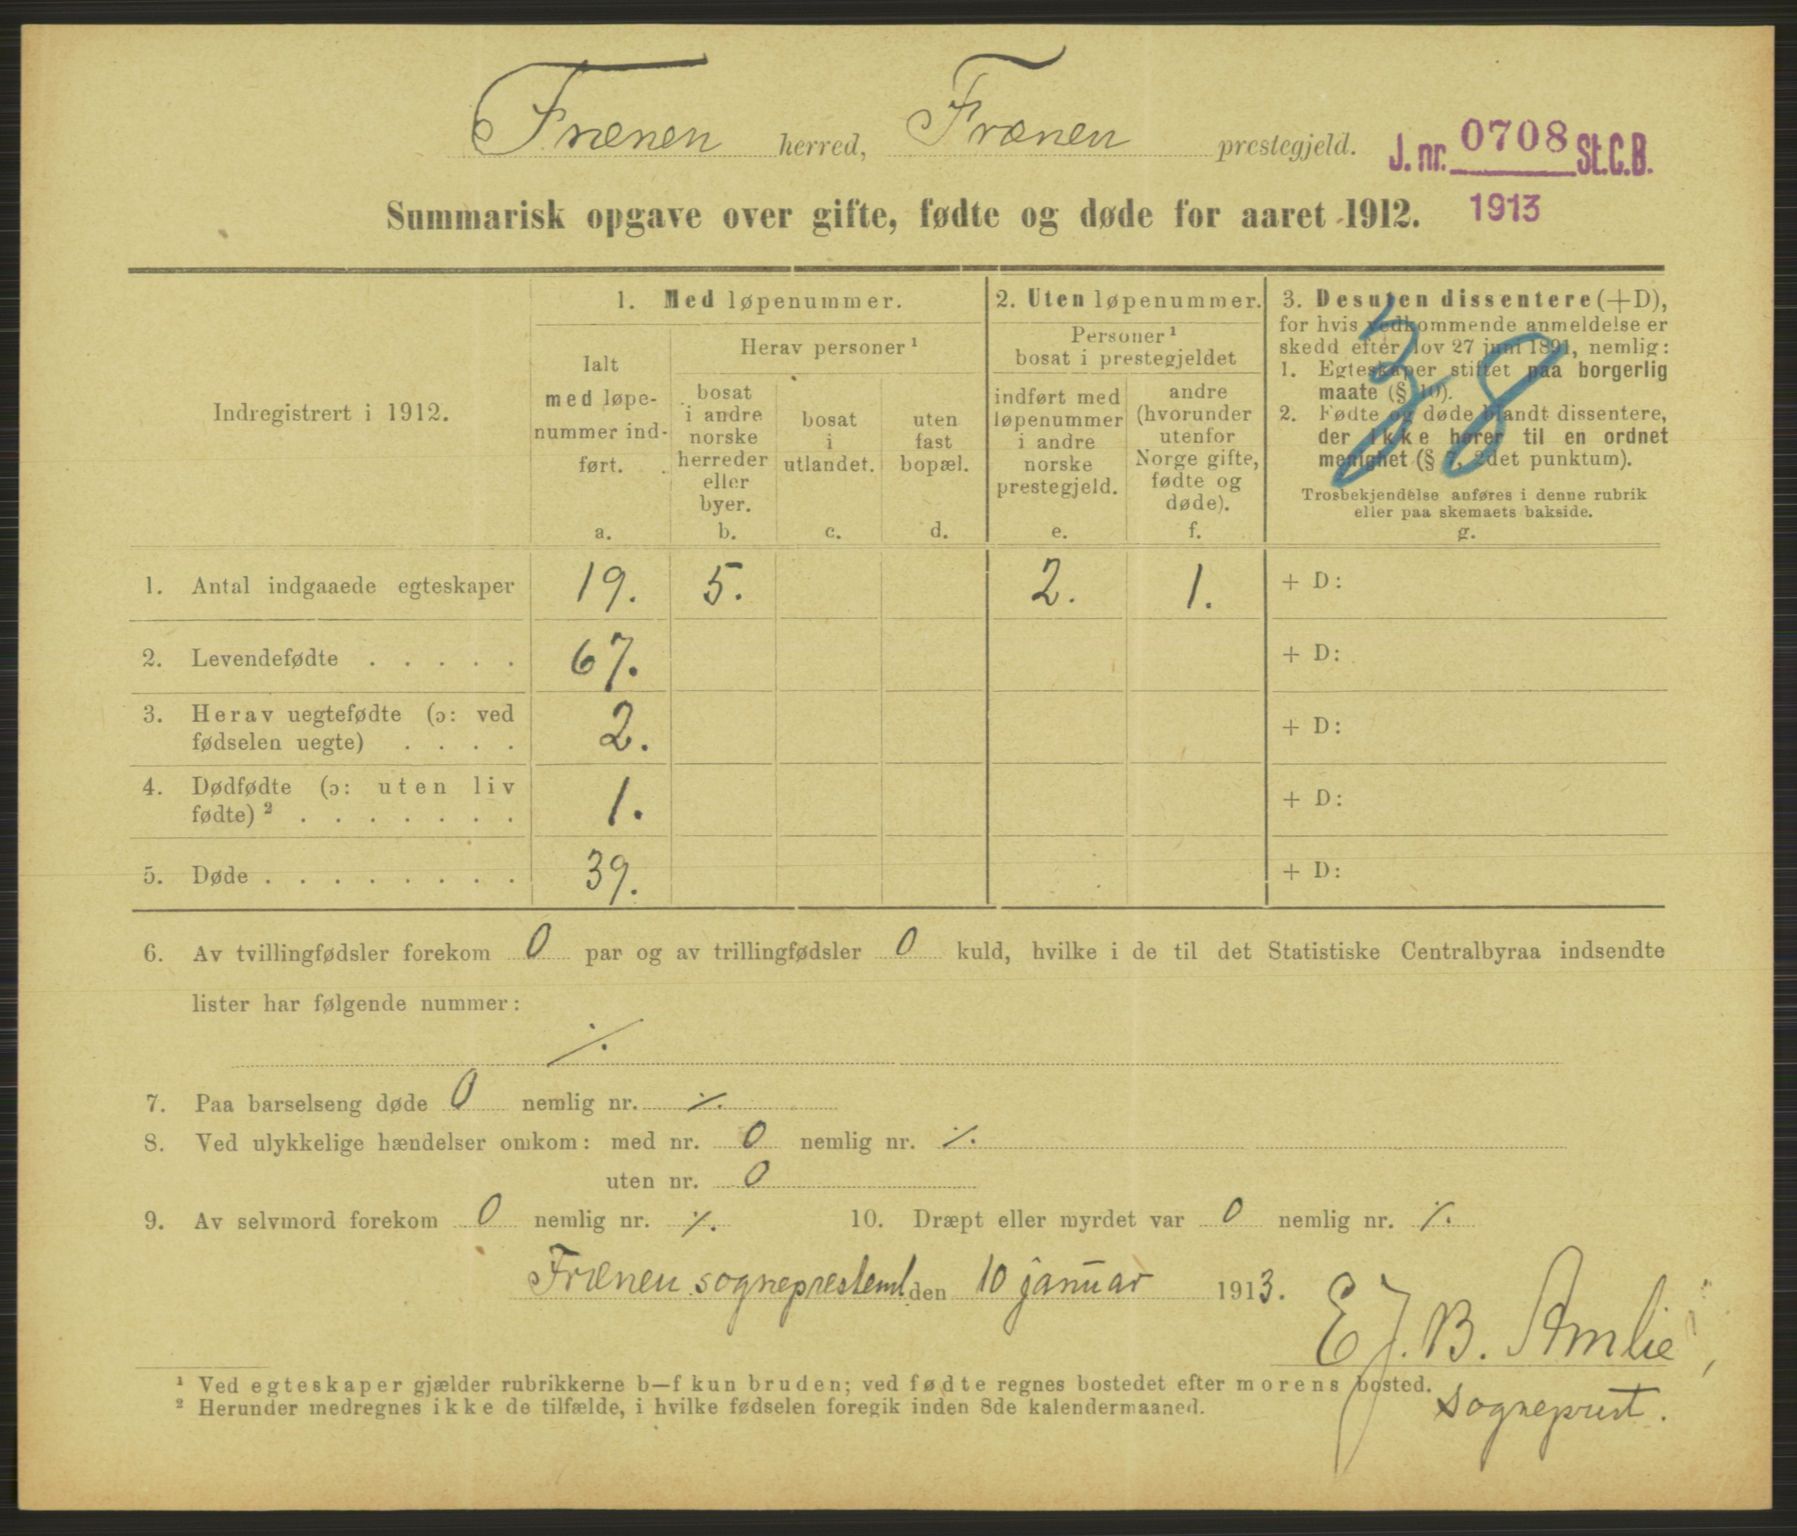 Frænen herred, Frænen prestegjeld.
J. nr. 0708 St.C.B.
1913
Summarisk opgave over gifte, fødte og døde for aaret 1912.
Indregistrert i 1912.
1. Med løpenummer.
Ialt
med løpe-
nummer ind-
ført.
a.
Herav personer ¹
bosat
i andre
norske
herreder
eller
byer.
b.
bosat
i
utlandet.
c.
uten
fast
bopæl.
d.
2. Uten løpenummer.
Personer ¹
bosat i prestegjeldet
indført med
løpenummer
i andre
norske
prestegjeld.
e.
andre
(hvorunder
utenfor
Norge gifte,
fødte og
døde).
f.
3. Desuten dissentere (+D),
for hvis vedkommende anmeldelse er
skedd efter lov 27 juni 1891, nemlig:
1. Egteskaper stiftet paa borgerlig
maate (§ 10).
2. Fødte og døde blandt dissentere,
der ikke hører til en ordnet
menighet (§ 7, 2det punktum).
Trosbekjendelse anføres i denne rubrik
eller paa skemaets bakside.
g.
38
1. Antal indgaaede egteskaper 19. 5. 2. 1. + D:
2. Levendefødte . . . . . 67. + D:
3. Herav uegtefødte (ɔ: ved
fødselen uegte) . . . . 2. + D:
4. Dødfødte (ɔ: uten liv
fødte) ² . . . . . . . 1. + D:
5. Døde . . . . . . . . 39. + D:
6. Av tvillingfødsler forekom 0 par og av trillingfødsler 0 kuld, hvilke i de til det Statistiske Centralbyraa indsendte
lister har følgende nummer:
./.
7. Paa barselseng døde 0 nemlig nr. ./.
8. Ved ulykkelige hændelser omkom: med nr. 0 nemlig nr. ./.
uten nr. 0
9. Av selvmord forekom 0 nemlig nr. ./. 10. Dræpt eller myrdet var 0 nemlig nr. ./.
Frænen sogneprestemb. den 10 januar 1913.
E. J. B. Amlie,
sogneprest.
¹ Ved egteskaper gjælder rubrikkerne b—f kun bruden; ved fødte regnes bostedet efter morens bosted.
² Herunder medregnes ikke de tilfælde, i hvilke fødselen foregik inden 8de kalendermaaned.